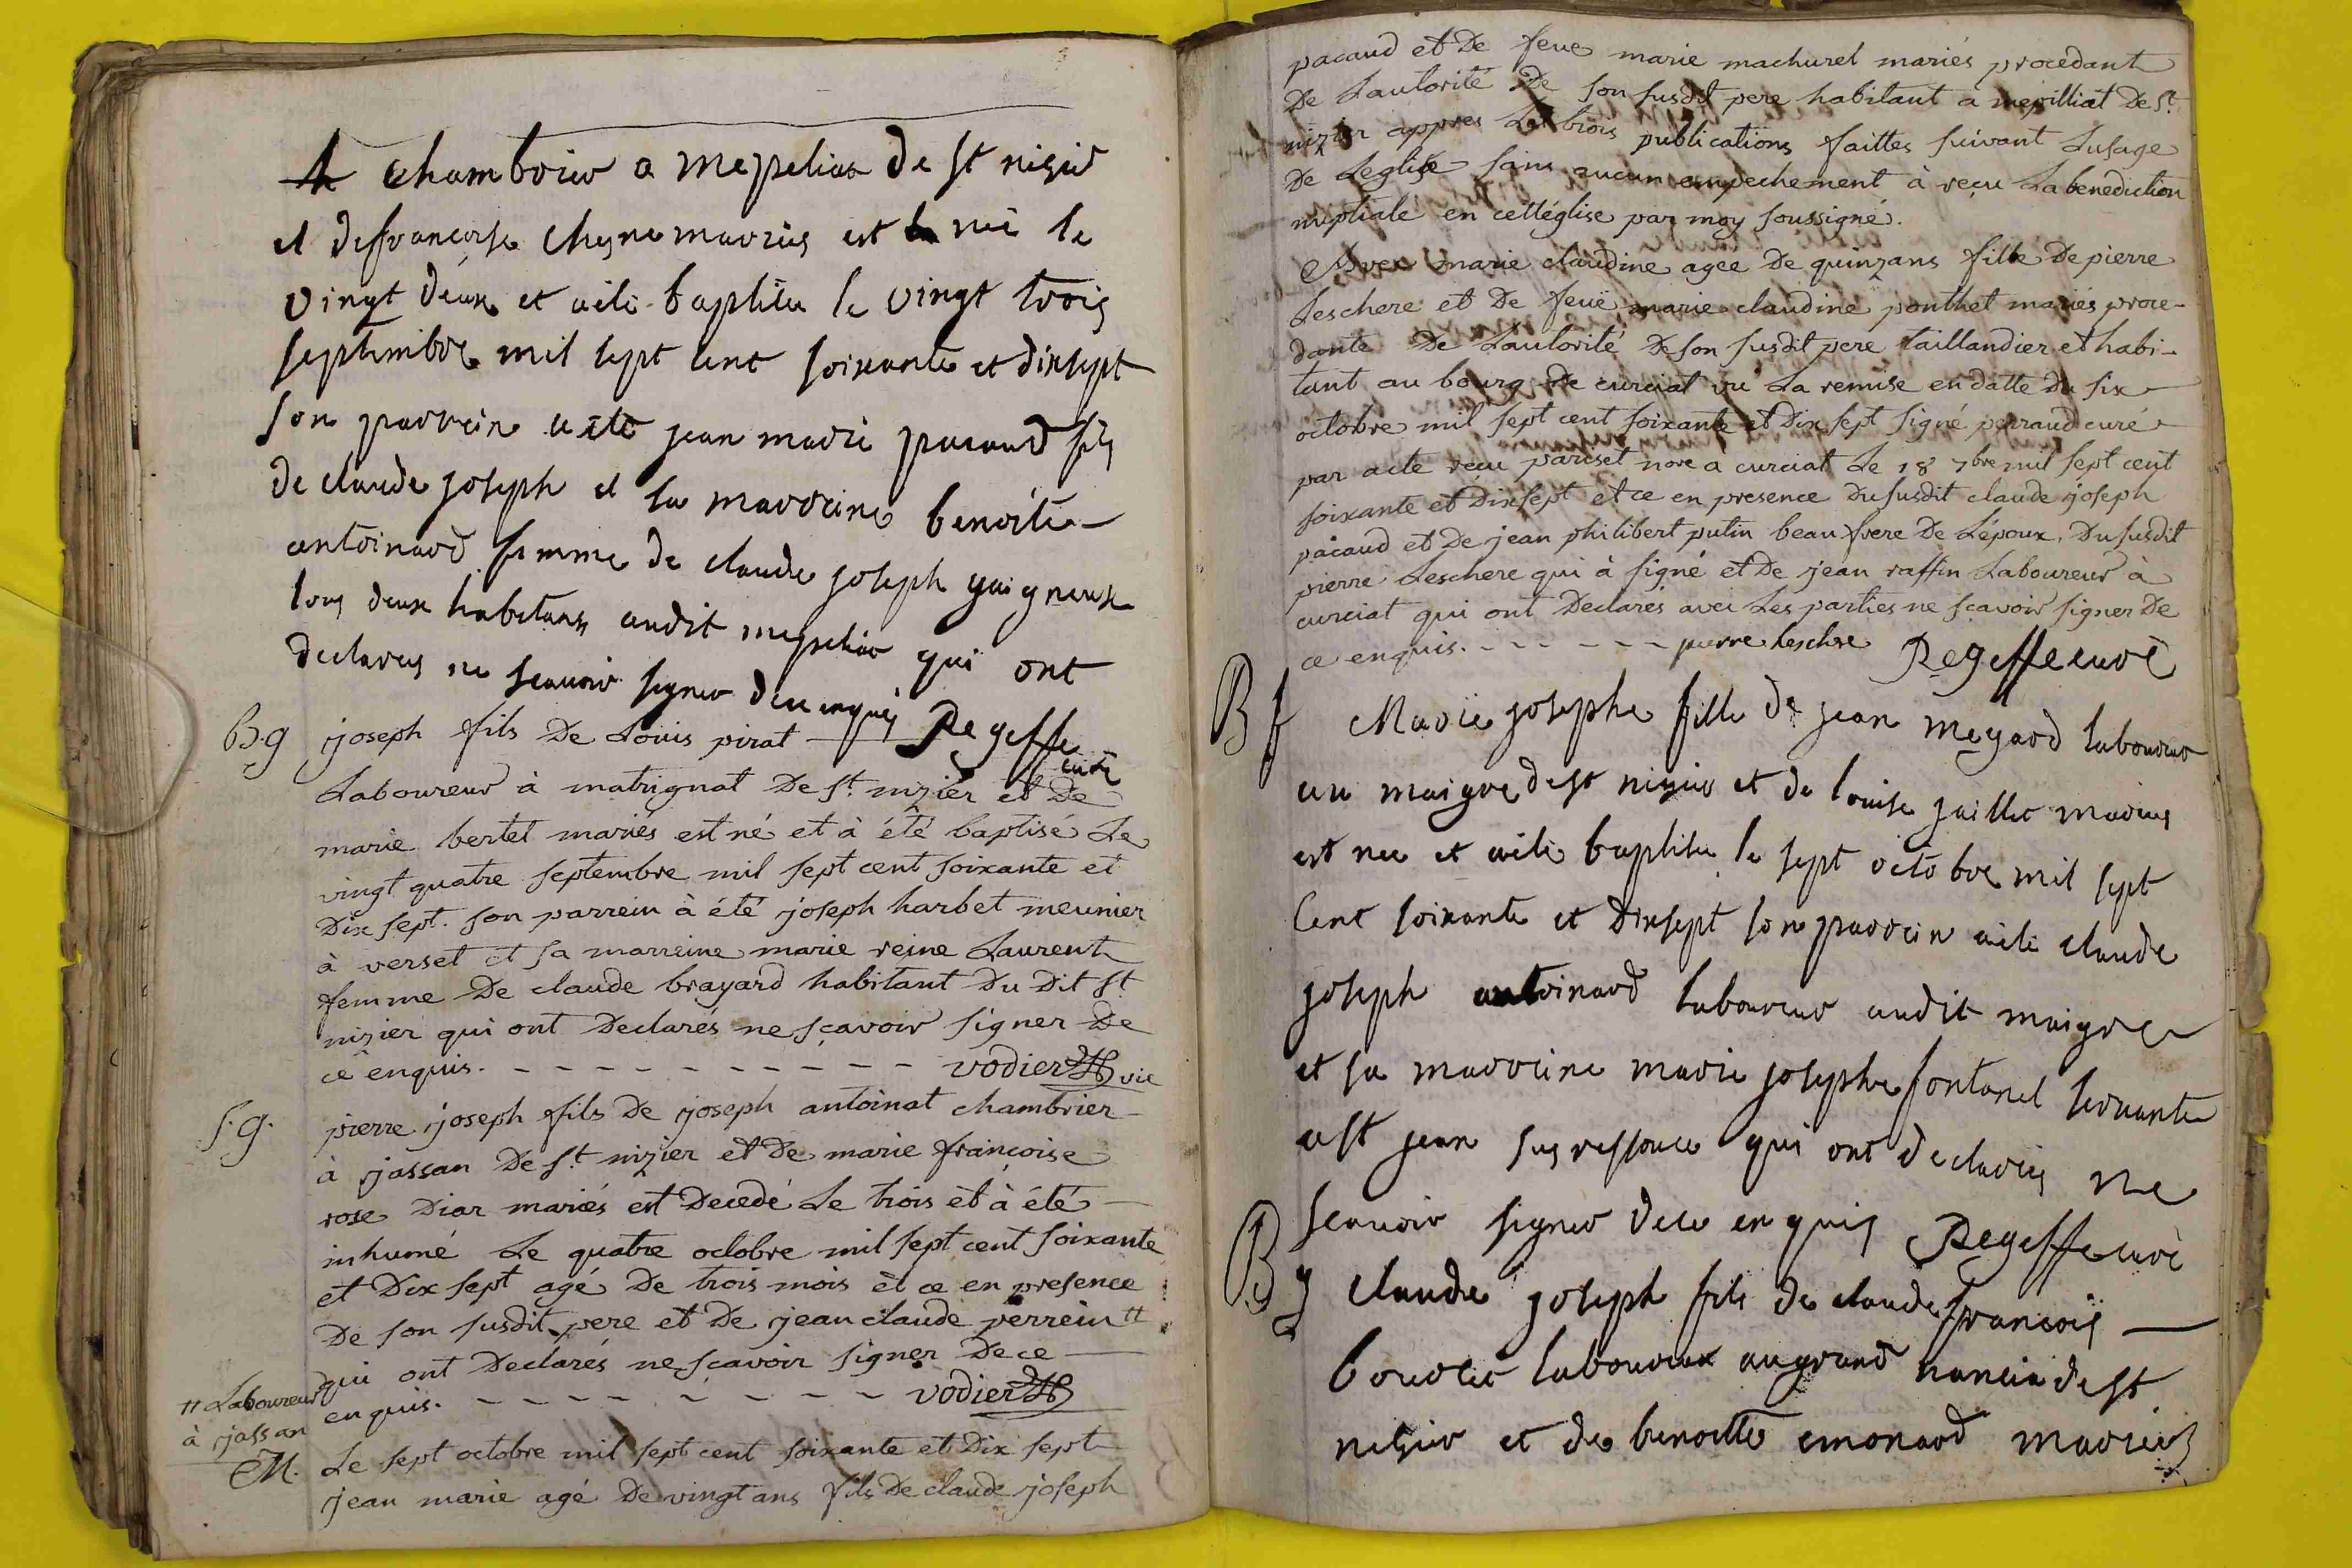 chambrier a mepeliar de st nisier
et defrancoise Chesne mariés est né le
vingt déux et aété baptisé le vingt trois
septembre mil sept cent soixante et dixsept
son parrein a été jean marie pacaud fils
de claude joseph et sa marreine benoite
antoinard femme de claude joseph gaigneux
tous deux habitans audit mepeliar qui ont
declarés ne scavoir signer dece enquis Regeffe
curé
B.g joseph fils De Loüis pirat
Laboureur à matrignat De st. nizier et De
marie bertet mariés est né et à été baptisé Le
vingt quatre septembre mil sept cent soixante et
Dix sept. son parrein à été joseph harbet meunier
à verset et sa marreine marie reine Laurent
femme De claude brayard habitant Du Dit st
nizier qui ont Declarés ne sçavoir signer De
ce enquis. - - - - - - - - - - vodier vic
s.g. pierre joseph fils De joseph antoinat chambrier
à jassan De st. nizier et De marie françoise
rose Diar mariés est Decedé Le trois et à été
inhumé Le quatre octobre mil sept cent soixante
et Dix sept agé De trois mois et ce en presence
De son susdit pere et De jean claude perrein #
qui ont Declarés ne sçavoir signer De ce
# Laboureur
à jassan
enquis. - - - - - - - - - vodier
M. Le sept octobre mil sept cent soixante et Dix sept
jean marie agé De vingt ans fils De claude joseph
pacaud et De feue marie machurel mariés procedant
De Lautorité De son susdit pere habitant a mepilliat De st.
nizier appres Les trois publications faittes suivant Lusage
De Leglise sans aucun empechement à reçu La benediction
nuptiale en cettéglise par moy soussigné.
Avec marie claudine agée De quinzans fille De pierre
Leschere et De feuë marie claudine ponthet mariés proce-
dante De Lautorité De son susdit pere taillandier et habi-
tant au bourg De curciat vu La remise en datte du six
octobre mil sept cent soixante et Dix sept signé perraud curé
par acte reçu pariset nore a curciat Le 18 7bre mil sept cent
soixante et Dixsept et ce en presence Du susdit claude joseph
pacaud et De jean philibert putin beau frere De Lépoux, Du susdit
pierre Leschere qui à signé et De jean raffin Laboureur à
curciat qui ont Declarés avec Les parties ne sçavoir signer De
ce enquis. - - - - - - pierre leschere Regeffe curé
B f Marie josephe fille de jean megard laboureur
au maigre dest nisier et de louise jaillet mariés
est née et aété baptisée le sept octobre mil sept
cent soixante et dixsept son parrein aété claude
joseph antoinard laboureur audit maigre
et sa marreine marie josephe fontanel servante
a st jean sus ressouce qui ont declarés ne
scavoir signer dece enquis Regeffe curé
B g claude joseph fils de claude françois
bourlet laboureur augrand nancin de st
nisier et de benoitte emonard mariés